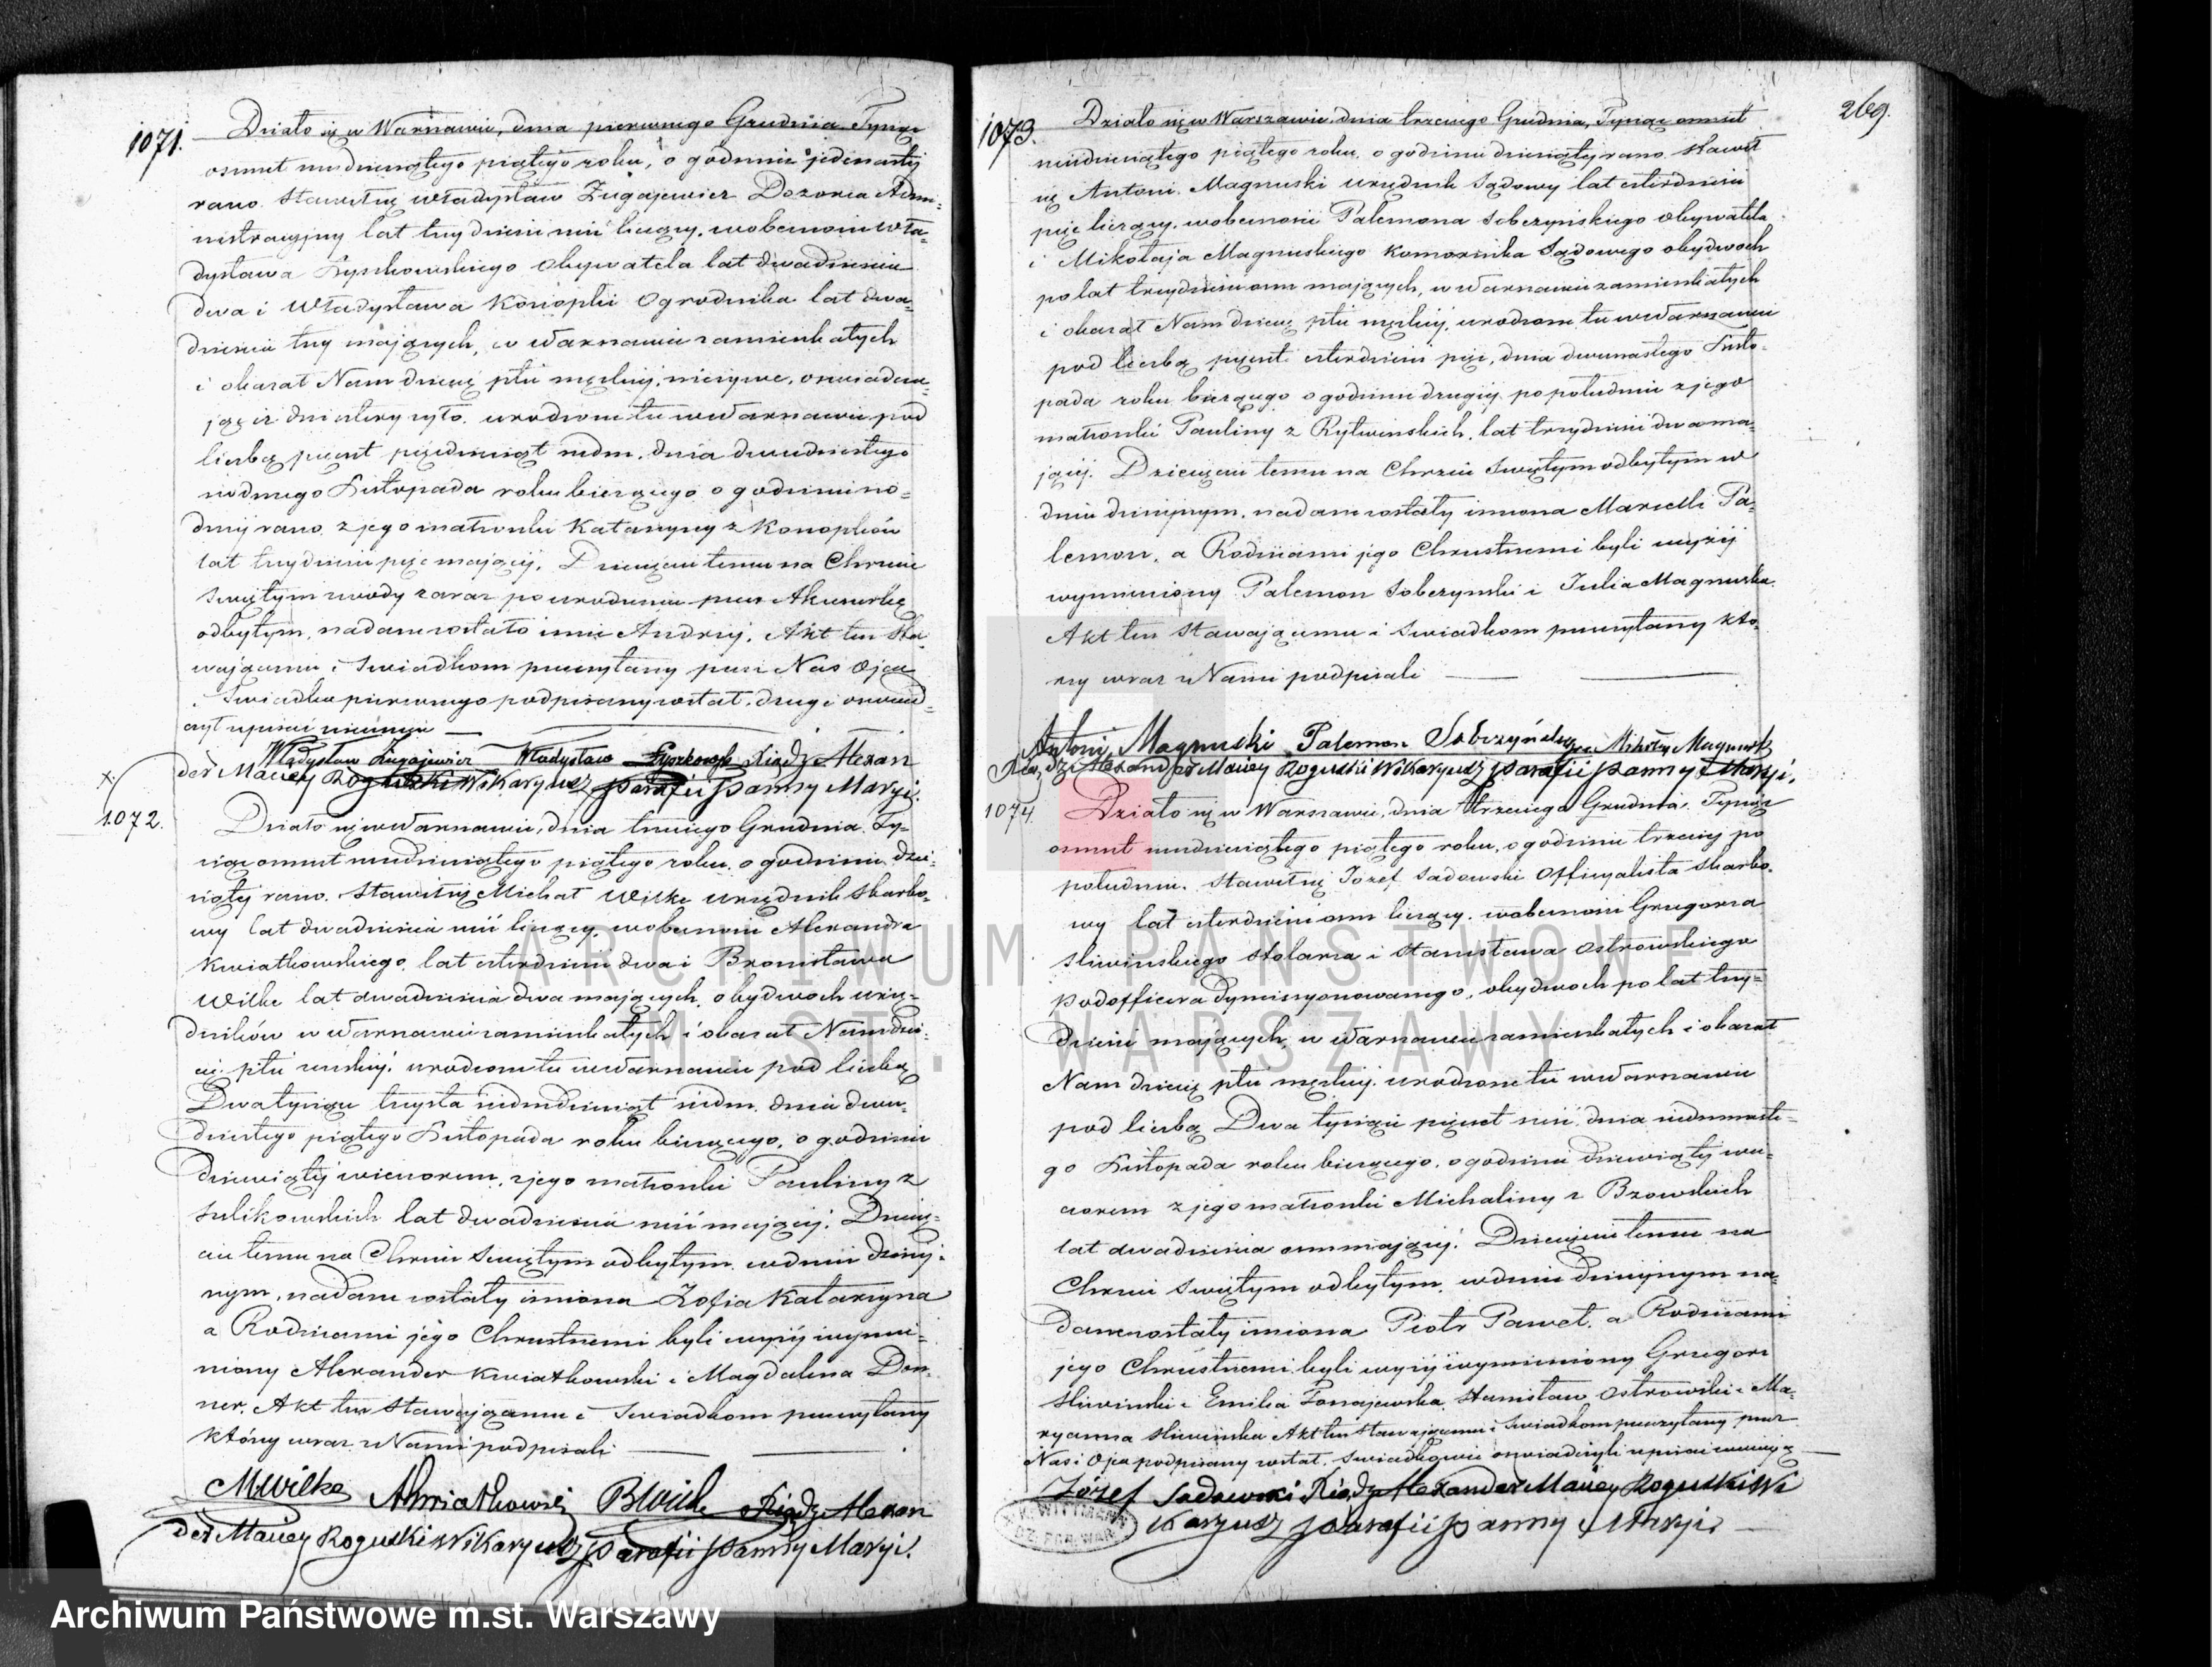 1071.
Działo się w Warszawie, dnia pierwszego Grudnia Tysiąc
osmset czterdziestego piątego roku, o godzinie jedenastej
rano. Stawił się Władysław Zugajewicz Dozorca Admi=
nistracyjny lat trzydzieści liczący, w obecności Wła=
dysława Łyszkowskiego Obywatela lat dwadzieścia
dwa i Władysława Konopki Ogrodnika lat dwa=
dzieścia trzy mających, w Warszawie zamieszkałych
i okazał Nam dziecię płci męzkiej, nieżywe, oswiadcza=
jąc iż dni cztery żyło, urodzone tu w Warszawie pod
liczbą pięćset pięćdziesiąt siedm, dnia dwudziestego
siodmego Listopada roku bieżącego o godzinie sio=
dmej rano, z jego małżonki Katarzyny z Konopków
lat trzydzieści pięć mającej. Dziecięciu temu na Chrzcie
Świętym z wody zaraz po urodzeniu przez Akuszerkę
odbytym, nadane zostało imie Andrzej. Akt ten sta=
wającemu i Swiadkom przeczytany przez Nas Ojca
i Swiadka pierwszego podpisany został, drugi oswiad=
czył iż pisać nieumie
Władysław Zugajewicz Władysław Łyszkowski Xiądz Alexan
der Maciey Rogulski Wikaryusz Parafii Panny Maryi.
X
1072.
Działo się w Warszawie, dnia trzeciego Grudnia Ty=
siąc osmset piątego roku, o godzinie dzie=
siątej rano. Stawił się Michał Wilke urzędnik Skarbo=
wy lat dwadzieścia liczący, w obecności Alexandra
Kwiatkowskiego lat czterdzieści dwa i Bronisława
Wilke lat dwadzieścia dwa mających, obydwoch urzę=
dników w Warszawie zamieszkałych i okazał Nam dzie=
cię płci żeńskiej, urodzone tu w Warszawie pod liczbą
Dwa tysiące trzysta siedmdziesiąt siedm, dnia dwu=
dziestego piątego Listopada roku bieżącego, o godzinie
dziewiątej wieczorem, z jego małżonki Pauliny z
Sulikowskich lat dwadzieścia mającej. Dziecię=
ciu temu na Chrzcie Świętym odbytym w dniu dzisiej=
szym, nadane zostały imiona Zofia Katarzyna
a Rodzicami jego Chrzestnemi byli wyżej wymie=
niony Alexander Kwiatkowski i Magdalena Don=
ner. Akt ten stawającemu i Swiadkom przeczytany
którzy wraz z Nami podpisali
M Wilke AKwiatkowski BWilke Xiądz Alexan
der Maciey Rogulski Wikaryusz Parafii Panny Maryi.
269.
1073.
Działo się w Warszawie, dnia trzeciego Grudnia, Tysiąc osmset
piątego roku, o godzinie dziesiątej rano. Stawił
się Antoni Magnuski urzędnik Sądowy lat czterdzieści
pięć liczący, w obecności Palemona Sobczyńskiego Obywatela
i Mikołaja Magnuskiego Komornika Sądowego obydwoch
po lat trzydzieści osm mających, w Warszawie zamieszkałych
i okazał Nam dziecię płci męzkiej, urodzone tu w Warszawie
pod liczbą pięćset czterdzieści pięć, dnia dwunastego Listo=
pada roku bieżącego o godzinie drugiej po południu z jego
małżonki Pauliny z Rytwinskich, lat trzydzieści dwa ma=
jącej. Dziecięciu temu na Chrzcie Świętym odbytym w
dniu dzisiejszym, nadane zostały imiona Marcelli Pa=
lemon, a Rodzicami jego Chrzestnemi byli wyżej
wymieniony Palemon Sobczynski i Julia Magnuska.
Akt ten stawającemu i Swiadkom przeczytany któ=
rzy wraz z Nami podpisali
Antoni Magnuski Palemon Sobczyński Mikołay Magnuski
Xiądz Alexander Maciey Rogulski Wikaryusz Parafii Panny Maryi.
1074.
Działo się w Warszawie, dnia trzeciego Grudnia, Tysiąc
osmset piątego roku, o godzinie trzeciej po
południu. Stawił się Jozef Sadowski Officyalista Skarbo=
wy lat czterdzieści osm liczący, w obecności Grzegorza
Sliwinskiego Stolarza i Stanisława Ostrowskiego
Podofficera dymissyonowanego, obydwoch po lat trzy=
dzieści mających, w Warszawie zamieszkałych i okazał
Nam dziecię płci męzkiej, urodzone tu w Warszawie
pod liczbą Dwa tysiące pięćset, dnia siedmnaste=
go Listopada roku bieżącego, o godzinie dziewiątej wie=
czorem z jego małżonki Michaliny z Bzowskich
lat dwadzieścia osm mającej. Dziecięciu temu na
Chrzcie Świętym odbytym, w dniu dzisiejszym na=
dane zostały imiona Piotr Paweł, a Rodzicami
jego Chrzestnemi byli wyżej wymieniony Grzegorz
Sliwinski i Emilia Stanisław Ostrowski i Ma=
ryanna Sliwinska Akt ten stawającemu i Swiadkom przeczytany przez
Nas i Ojca podpisany został. Swiadkowie oswiadczyli iż pisać nieumieją
Józef Sadowski Xiądz Alexander Maciey Rogulski Wi
karyusz Parafii Panny Maryi.
ARCHIWUM PAŃSTWOWE
M.ST. WARSZAWY
Archiwum Państwowe m.st. Warszawy